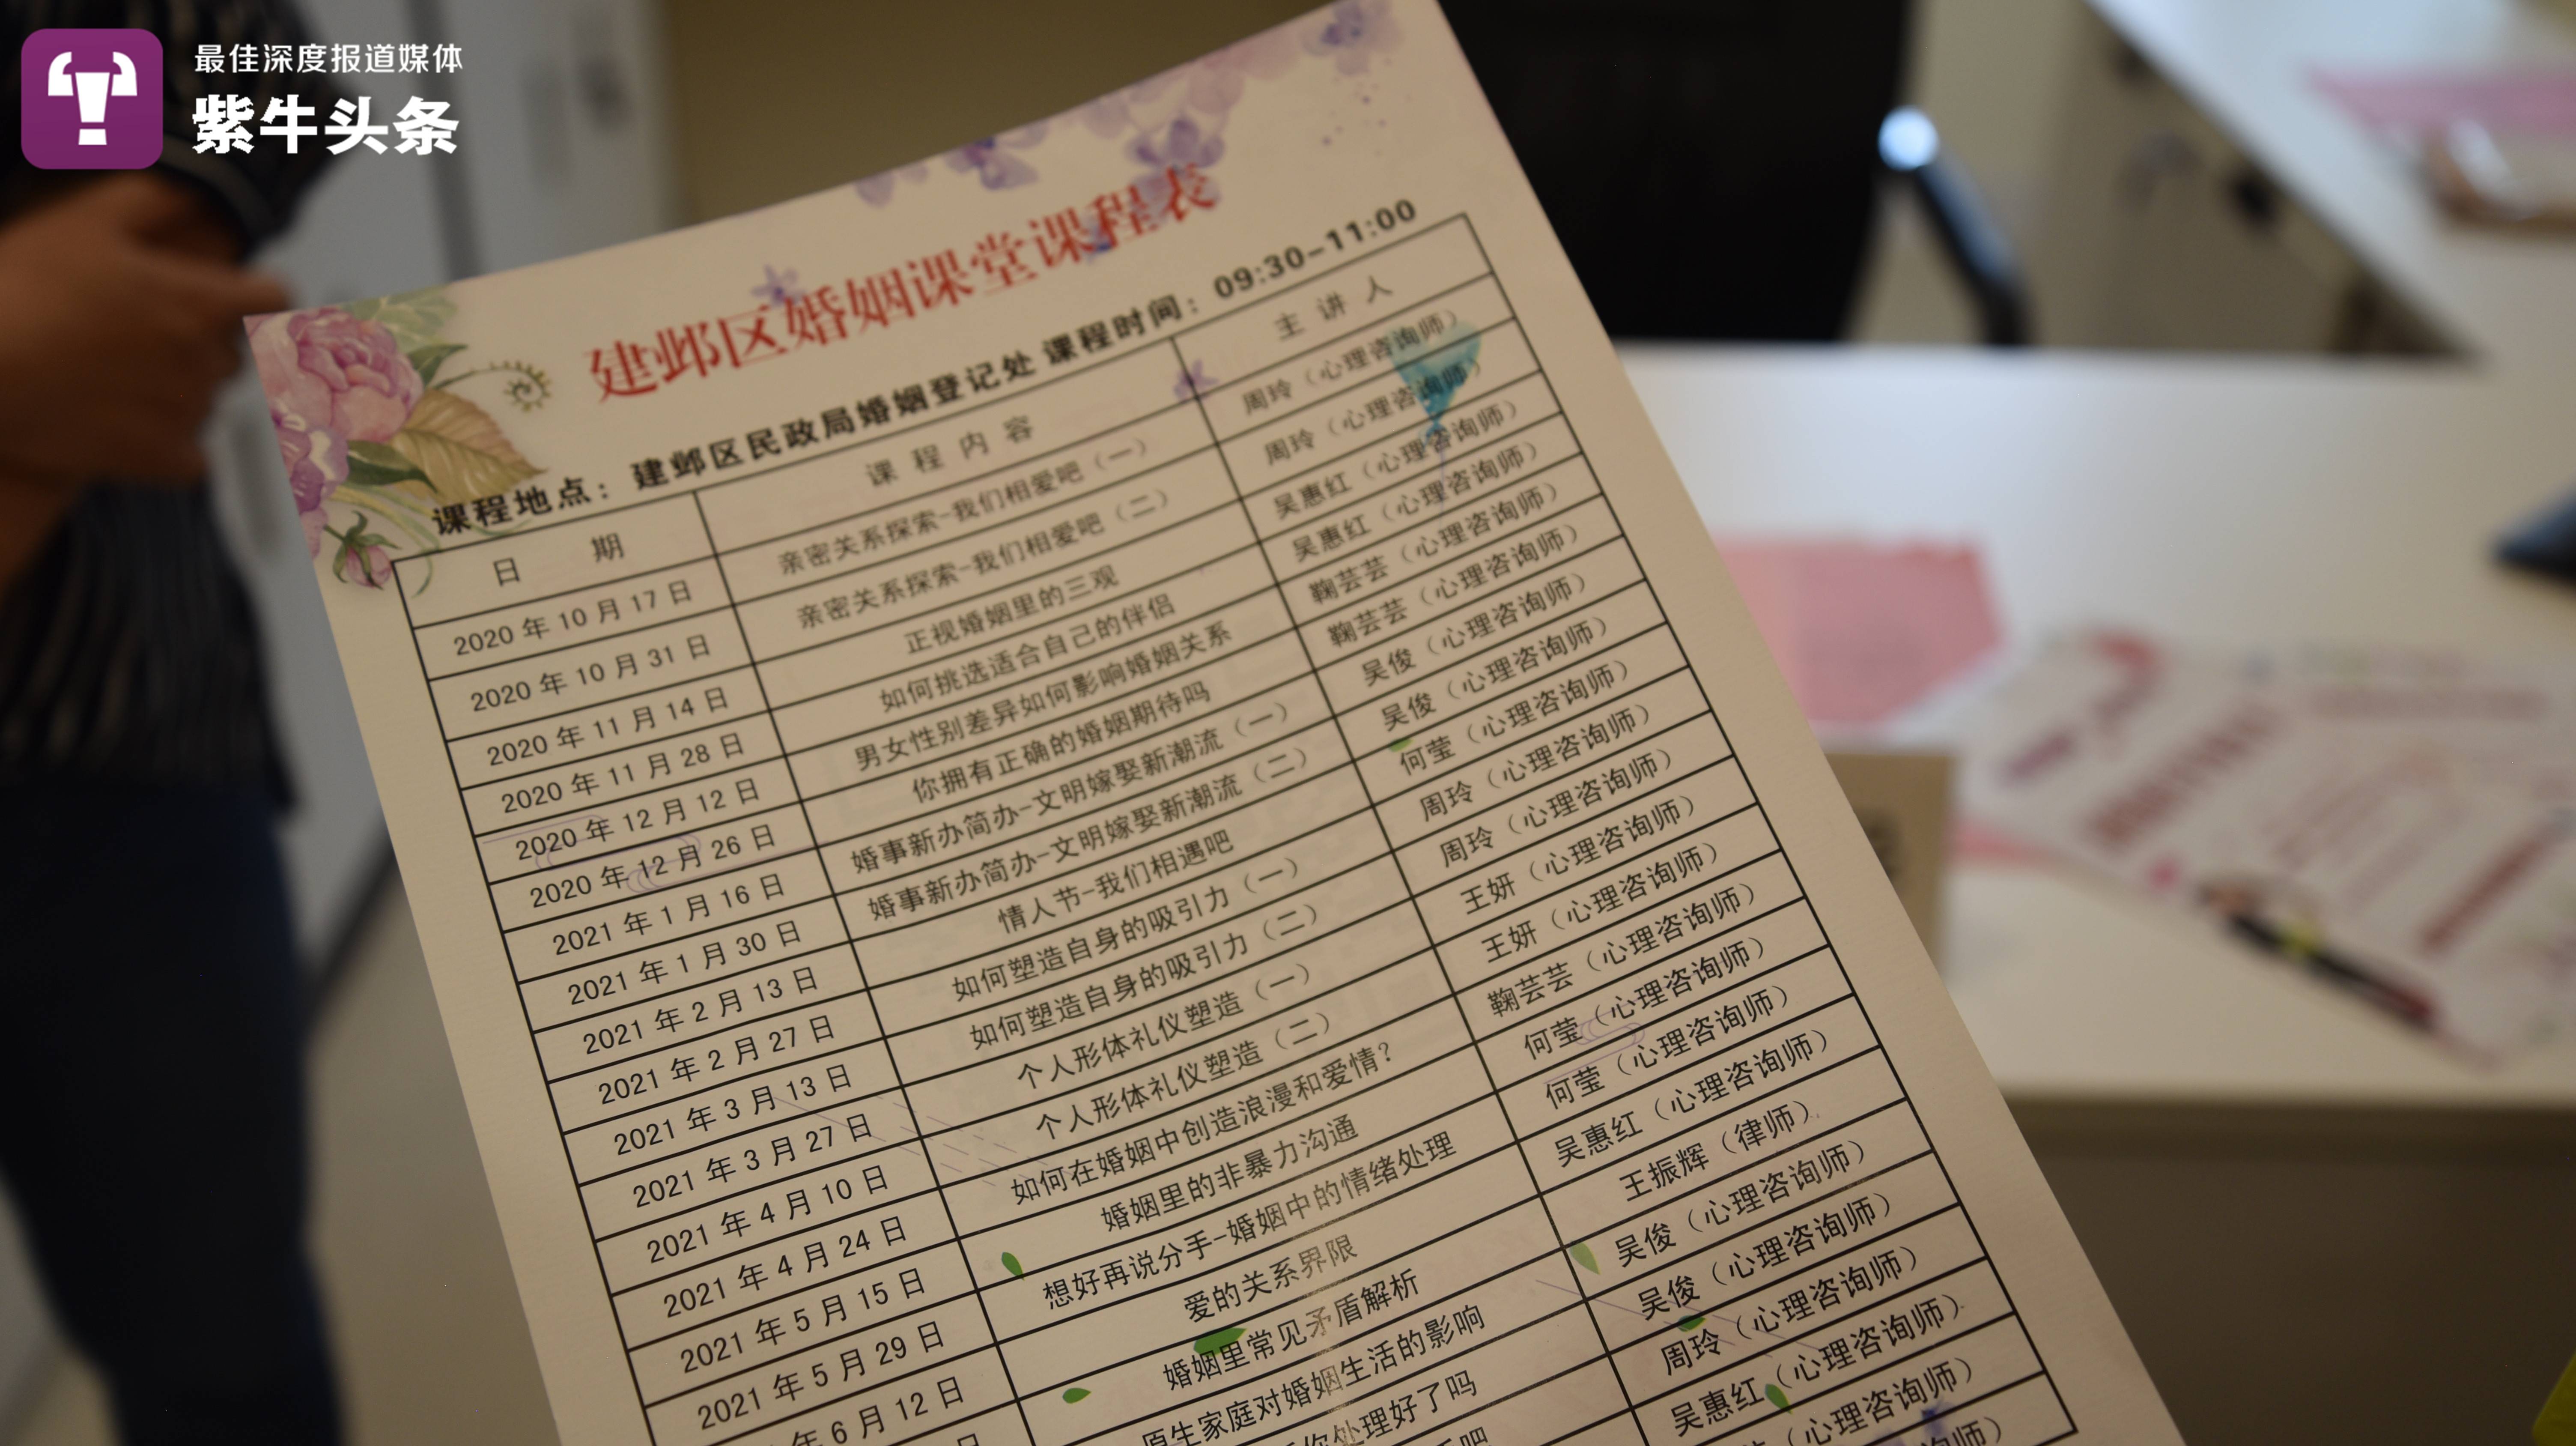 最佳深度报道媒体
紫牛头条
建邺区婚姻课堂课程表
课程地点：建邺区民政局婚姻登记处 课程时间：09:30-11:00
日 期 课 程 内 容 主 讲 人
2020 年 10 月 17 日 亲密关系探索-我们相爱吧（一） 周玲（心理咨询师）
2020 年 10 月 31 日 亲密关系探索-我们相爱吧（二） 周玲（心理咨询师）
2020 年 11 月 14 日 正视婚姻里的三观 吴惠红（心理咨询师）
2020 年 11 月 28 日 如何挑选适合自己的伴侣 吴惠红（心理咨询师）
2020 年 12 月 12 日 男女性别差异如何影响婚姻关系 鞠芸芸（心理咨询师）
2020 年 12 月 26 日 你拥有正确的婚姻期待吗 鞠芸芸（心理咨询师）
2021 年 1 月 16 日 婚事新办简办-文明嫁娶新潮流（一） 吴俊（心理咨询师）
2021 年 1 月 30 日 婚事新办简办-文明嫁娶新潮流（二） 吴俊（心理咨询师）
2021 年 2 月 13 日 情人节-我们相遇吧 何莹（心理咨询师）
2021 年 2 月 27 日 如何塑造自身的吸引力（一） 周玲（心理咨询师）
2021 年 3 月 13 日 如何塑造自身的吸引力（二） 周玲（心理咨询师）
2021 年 3 月 27 日 个人形体礼仪塑造（一） 王妍（心理咨询师）
2021 年 4 月 10 日 个人形体礼仪塑造（二） 王妍（心理咨询师）
2021 年 4 月 24 日 如何在婚姻中创造浪漫和爱情？ 鞠芸芸（心理咨询师）
2021 年 5 月 15 日 婚姻里的非暴力沟通 何莹（心理咨询师）
2021 年 5 月 29 日 想好再说分手-婚姻中的情绪处理 何莹（心理咨询师）
年 6 月 12 日 爱的关系界限 吴惠红（心理咨询师）
日 婚姻里常见矛盾解析 王振辉（律师）
原生家庭对婚姻生活的影响 吴俊（心理咨询师）
你处理好了吗 吴俊（心理咨询师）
吧 周玲（心理咨询师）
吴惠红（心理咨询师）
（心理咨询师）
询师）